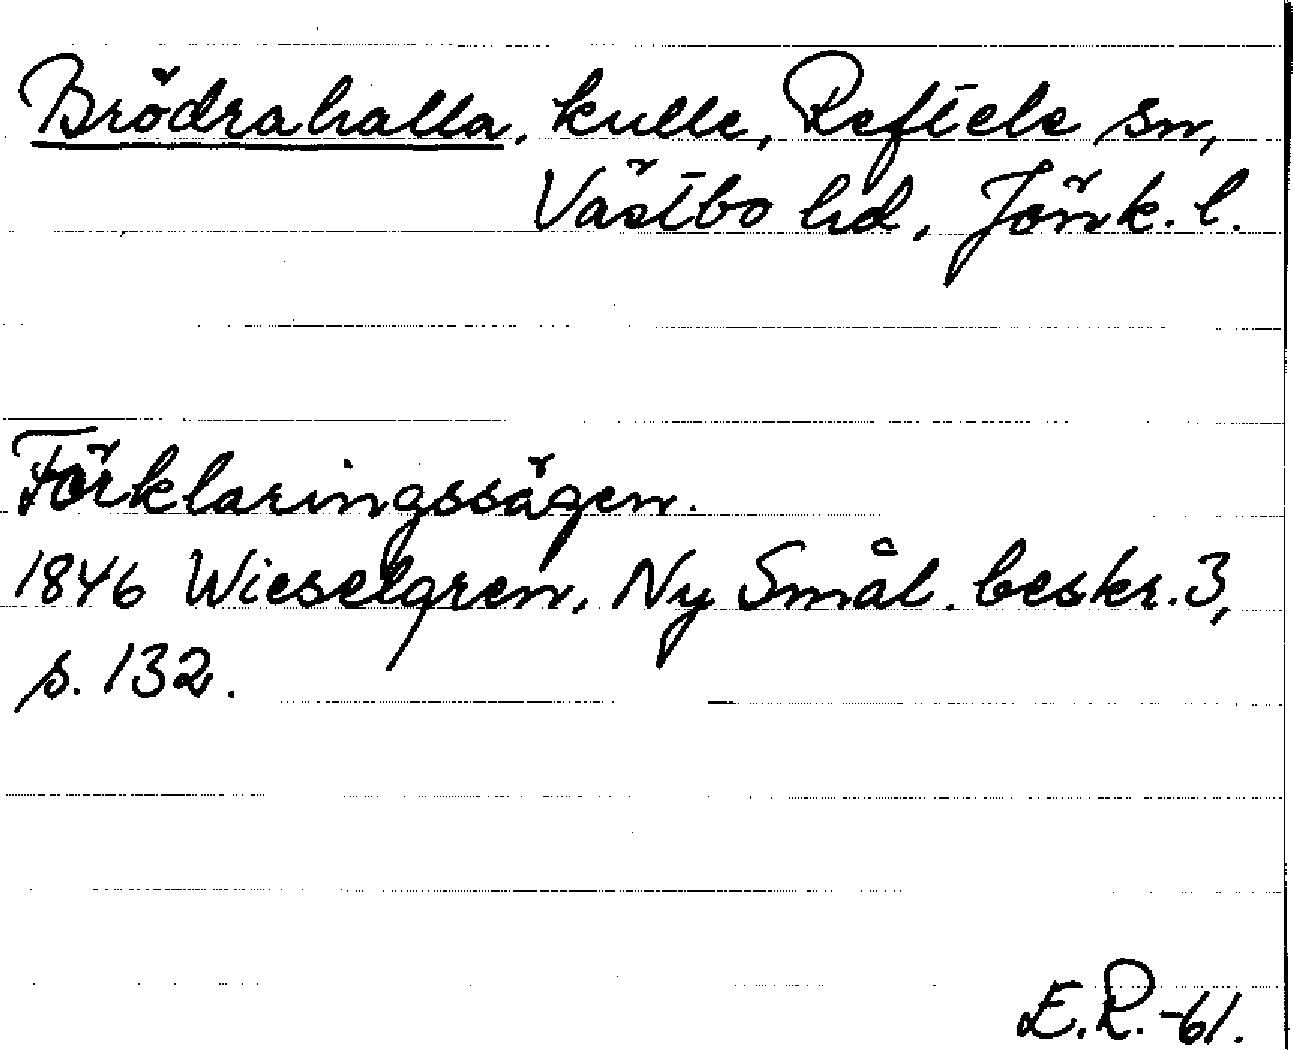 Brödrahalla, kulle, Reftele sn,
Västbo hd, Jönk. l.
Förklaringssägen.
1846 Wieselgren, Ny Smål. beskr. 3,
s. 132.
E.R.-61.